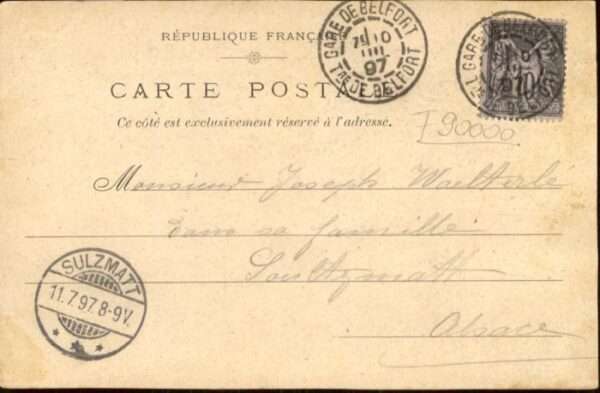 RÉPUBLIQUE FRANÇAISE
GARE DE BELFORT
10
97
Tre DE BELFORT
GARE
DE BELFORT
10
CARTE POSTA
Ce côté est exclusivement réservé à l'adresse.
F90000
Monsieur Joseph Waelterlé
dans sa famille
Soultzmatt
Alsace
SULZMATT
11.7.97.8-9V.